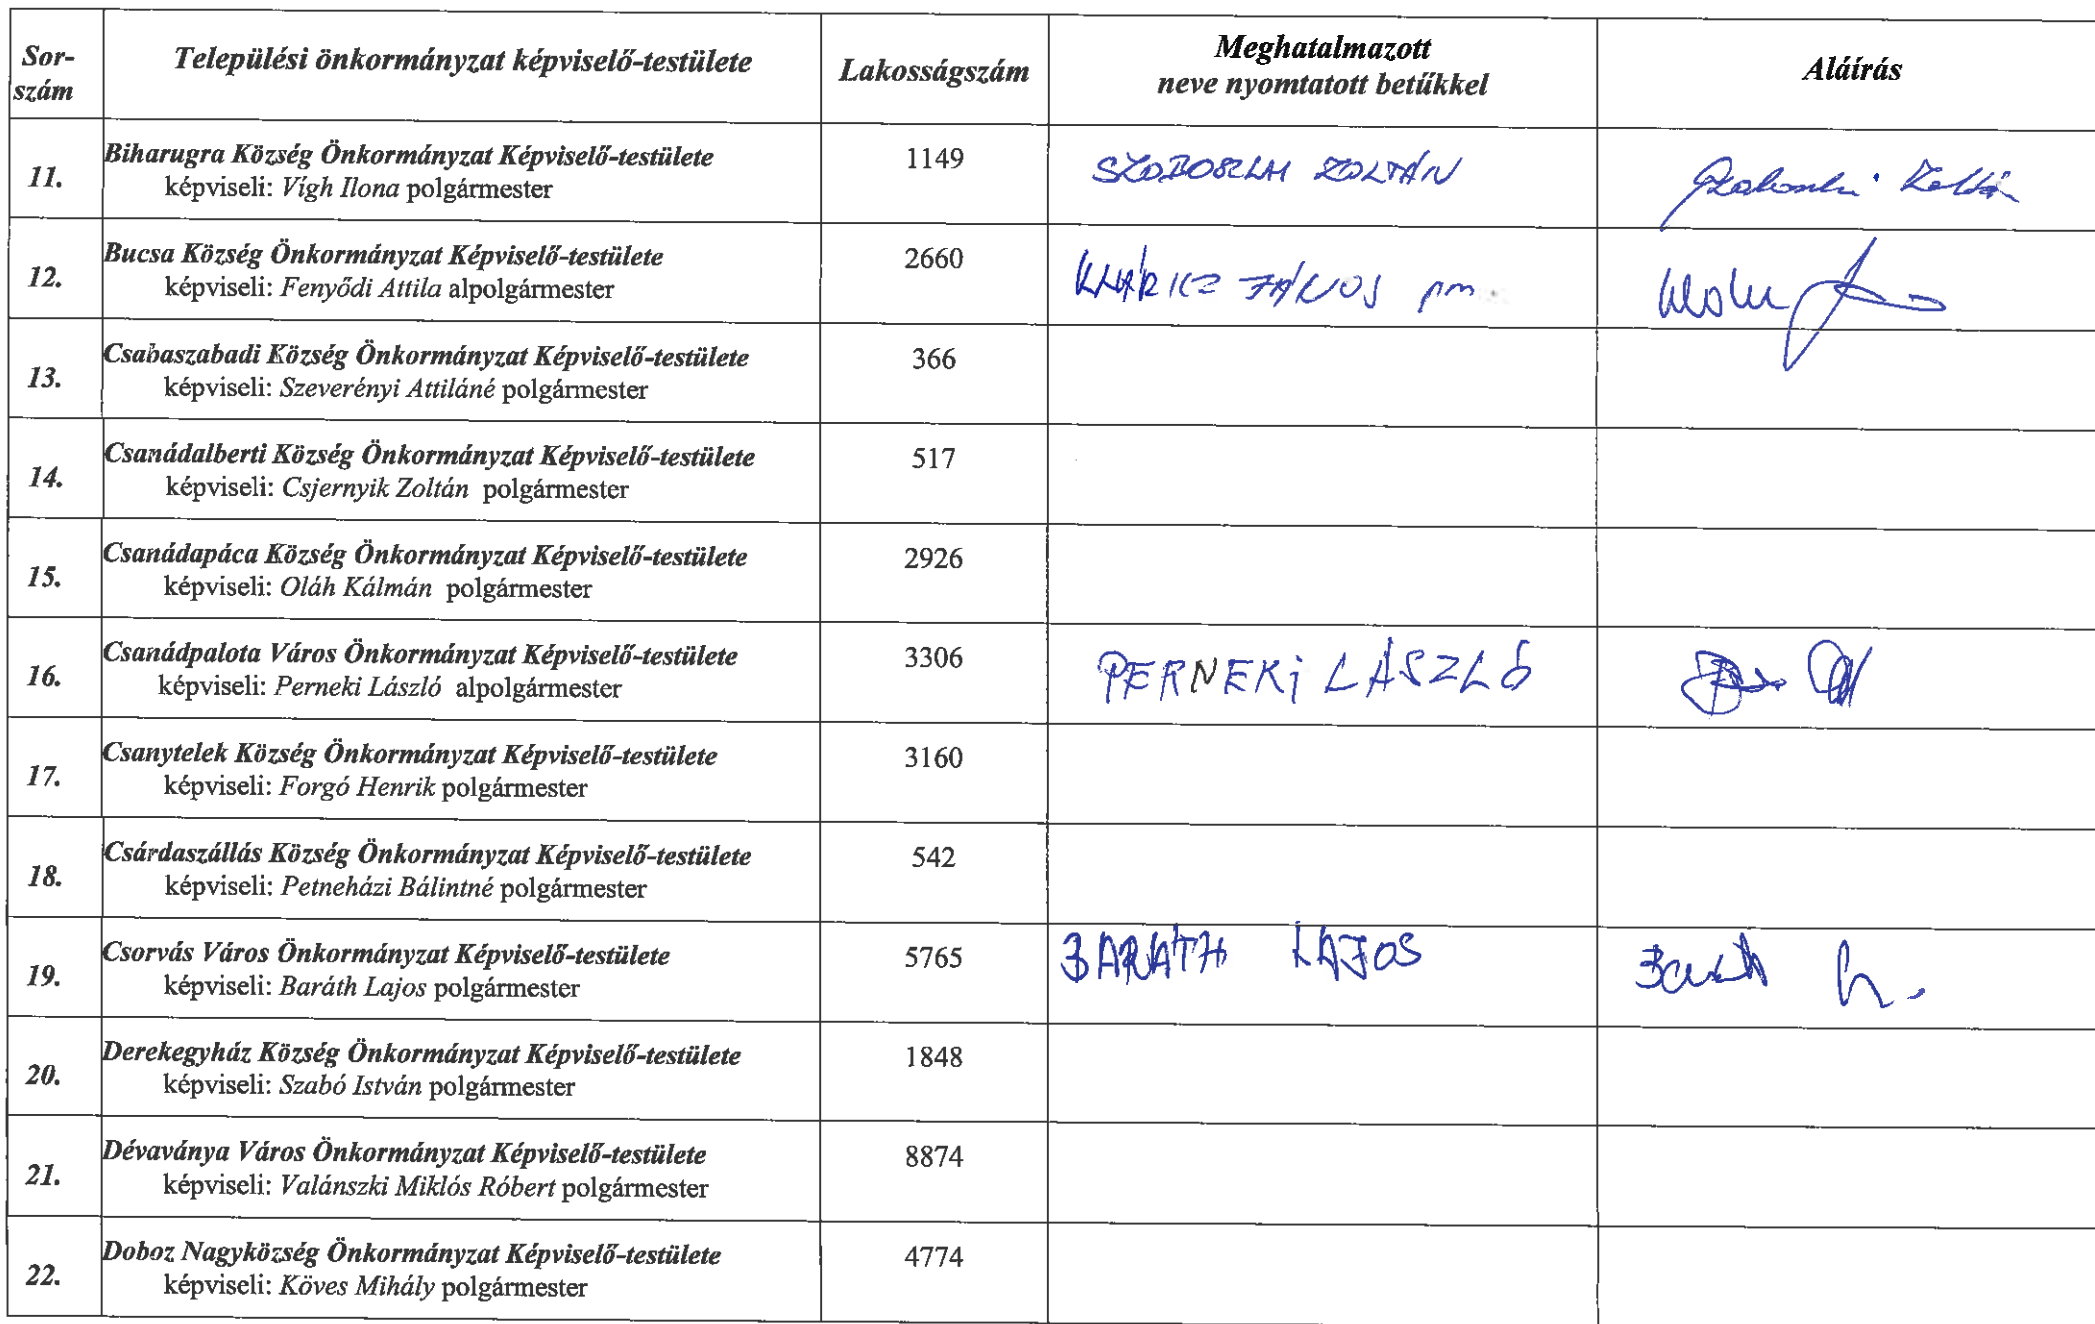 Sor-
szám
Települési önkormányzat képviselő-testülete
Lakosságszám
Meghatalmazott
neve nyomtatott betűkkel
Aláírás
11.
Biharugra Község Önkormányzat Képviselő-testülete
képviseli: Vígh Ilona polgármester
1149
SZOBOSZLAI ZOLTÁN
Szoboszlai Zoltán
12.
Bucsa Község Önkormányzat Képviselő-testülete
képviseli: Fenyődi Attila alpolgármester
2660
KLÁRICZ JÁNOS pm.
13.
Csabaszabadi Község Önkormányzat Képviselő-testülete
képviseli: Szeverényi Attiláné polgármester
366
14.
Csanádalberti Község Önkormányzat Képviselő-testülete
képviseli: Csjernyik Zoltán polgármester
517
15.
Csanádapáca Község Önkormányzat Képviselő-testülete
képviseli: Oláh Kálmán polgármester
2926
16.
Csanádpalota Város Önkormányzat Képviselő-testülete
képviseli: Perneki László alpolgármester
3306
PERNEKI LÁSZLÓ
17.
Csanytelek Község Önkormányzat Képviselő-testülete
képviseli: Forgó Henrik polgármester
3160
18.
Csárdaszállás Község Önkormányzat Képviselő-testülete
képviseli: Petneházi Bálintné polgármester
542
19.
Csorvás Város Önkormányzat Képviselő-testülete
képviseli: Baráth Lajos polgármester
5765
BARÁTH LAJOS
Baráth L.
20.
Derekegyház Község Önkormányzat Képviselő-testülete
képviseli: Szabó István polgármester
1848
21.
Dévaványa Város Önkormányzat Képviselő-testülete
képviseli: Valánszki Miklós Róbert polgármester
8874
22.
Doboz Nagyközség Önkormányzat Képviselő-testülete
képviseli: Köves Mihály polgármester
4774